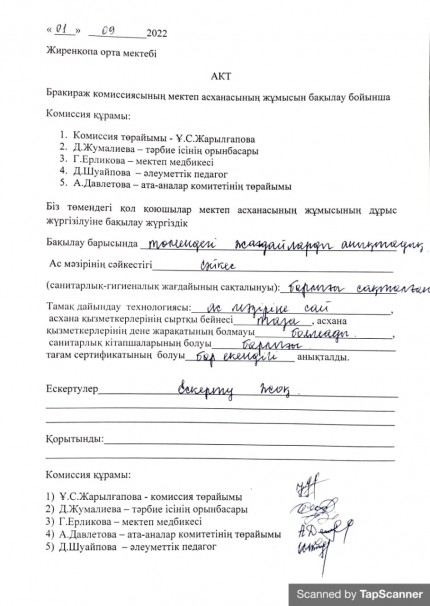 « 01 » 09 2022
Жиренқопа орта мектебі
АКТ
Бракираж комиссиясының мектеп асханасының жұмысын бақылау бойынша
Комиссия құрамы:
1. Комиссия төрайымы - Ұ.С.Жарылғапова
2. Д.Жумалиева – тәрбие ісінің орынбасары
3. Г.Ерликова – мектеп медбикесі
4. Д.Шуайпова – әлеуметтік педагог
5. А.Давлетова – ата-аналар комитетінің төрайымы
Біз төмендегі қол қоюшылар мектеп асханасының жұмысының дұрыс
жүргізілуіне бақылау жүргіздік
Бақылау барысында төмендегі жағдайларды анықтадық
Ас мәзірінің сәйкестігі сәйкес
(санитарлық-гигиеналық жағдайының сақталуны): барлығы сақталған
Тамақ дайындау технологиясы: Ас мәзіріне сай ,
асхана қызметкерлерінің сыртқы бейнесі таза , асхана
қызметкерлерінің дене жарақатының болмауы болмады ,
санитарлық кітапшаларының болуы барлығы
тағам сертификатының болуы бар екендігі анықталды.
Ескертулер Ескерту жоқ
Қорытынды:
Комиссия құрамы:
1) Ұ.С.Жарылғапова - комиссия төрайымы
2) Д.Жумалиева – тәрбие ісінің орынбасары
3) Г.Ерликова – мектеп медбикесі
4) А.Давлетова – ата-аналар комитетінің төрайымы
5) Д.Шуайпова – әлеуметтік педагог
Scanned by TapScanner